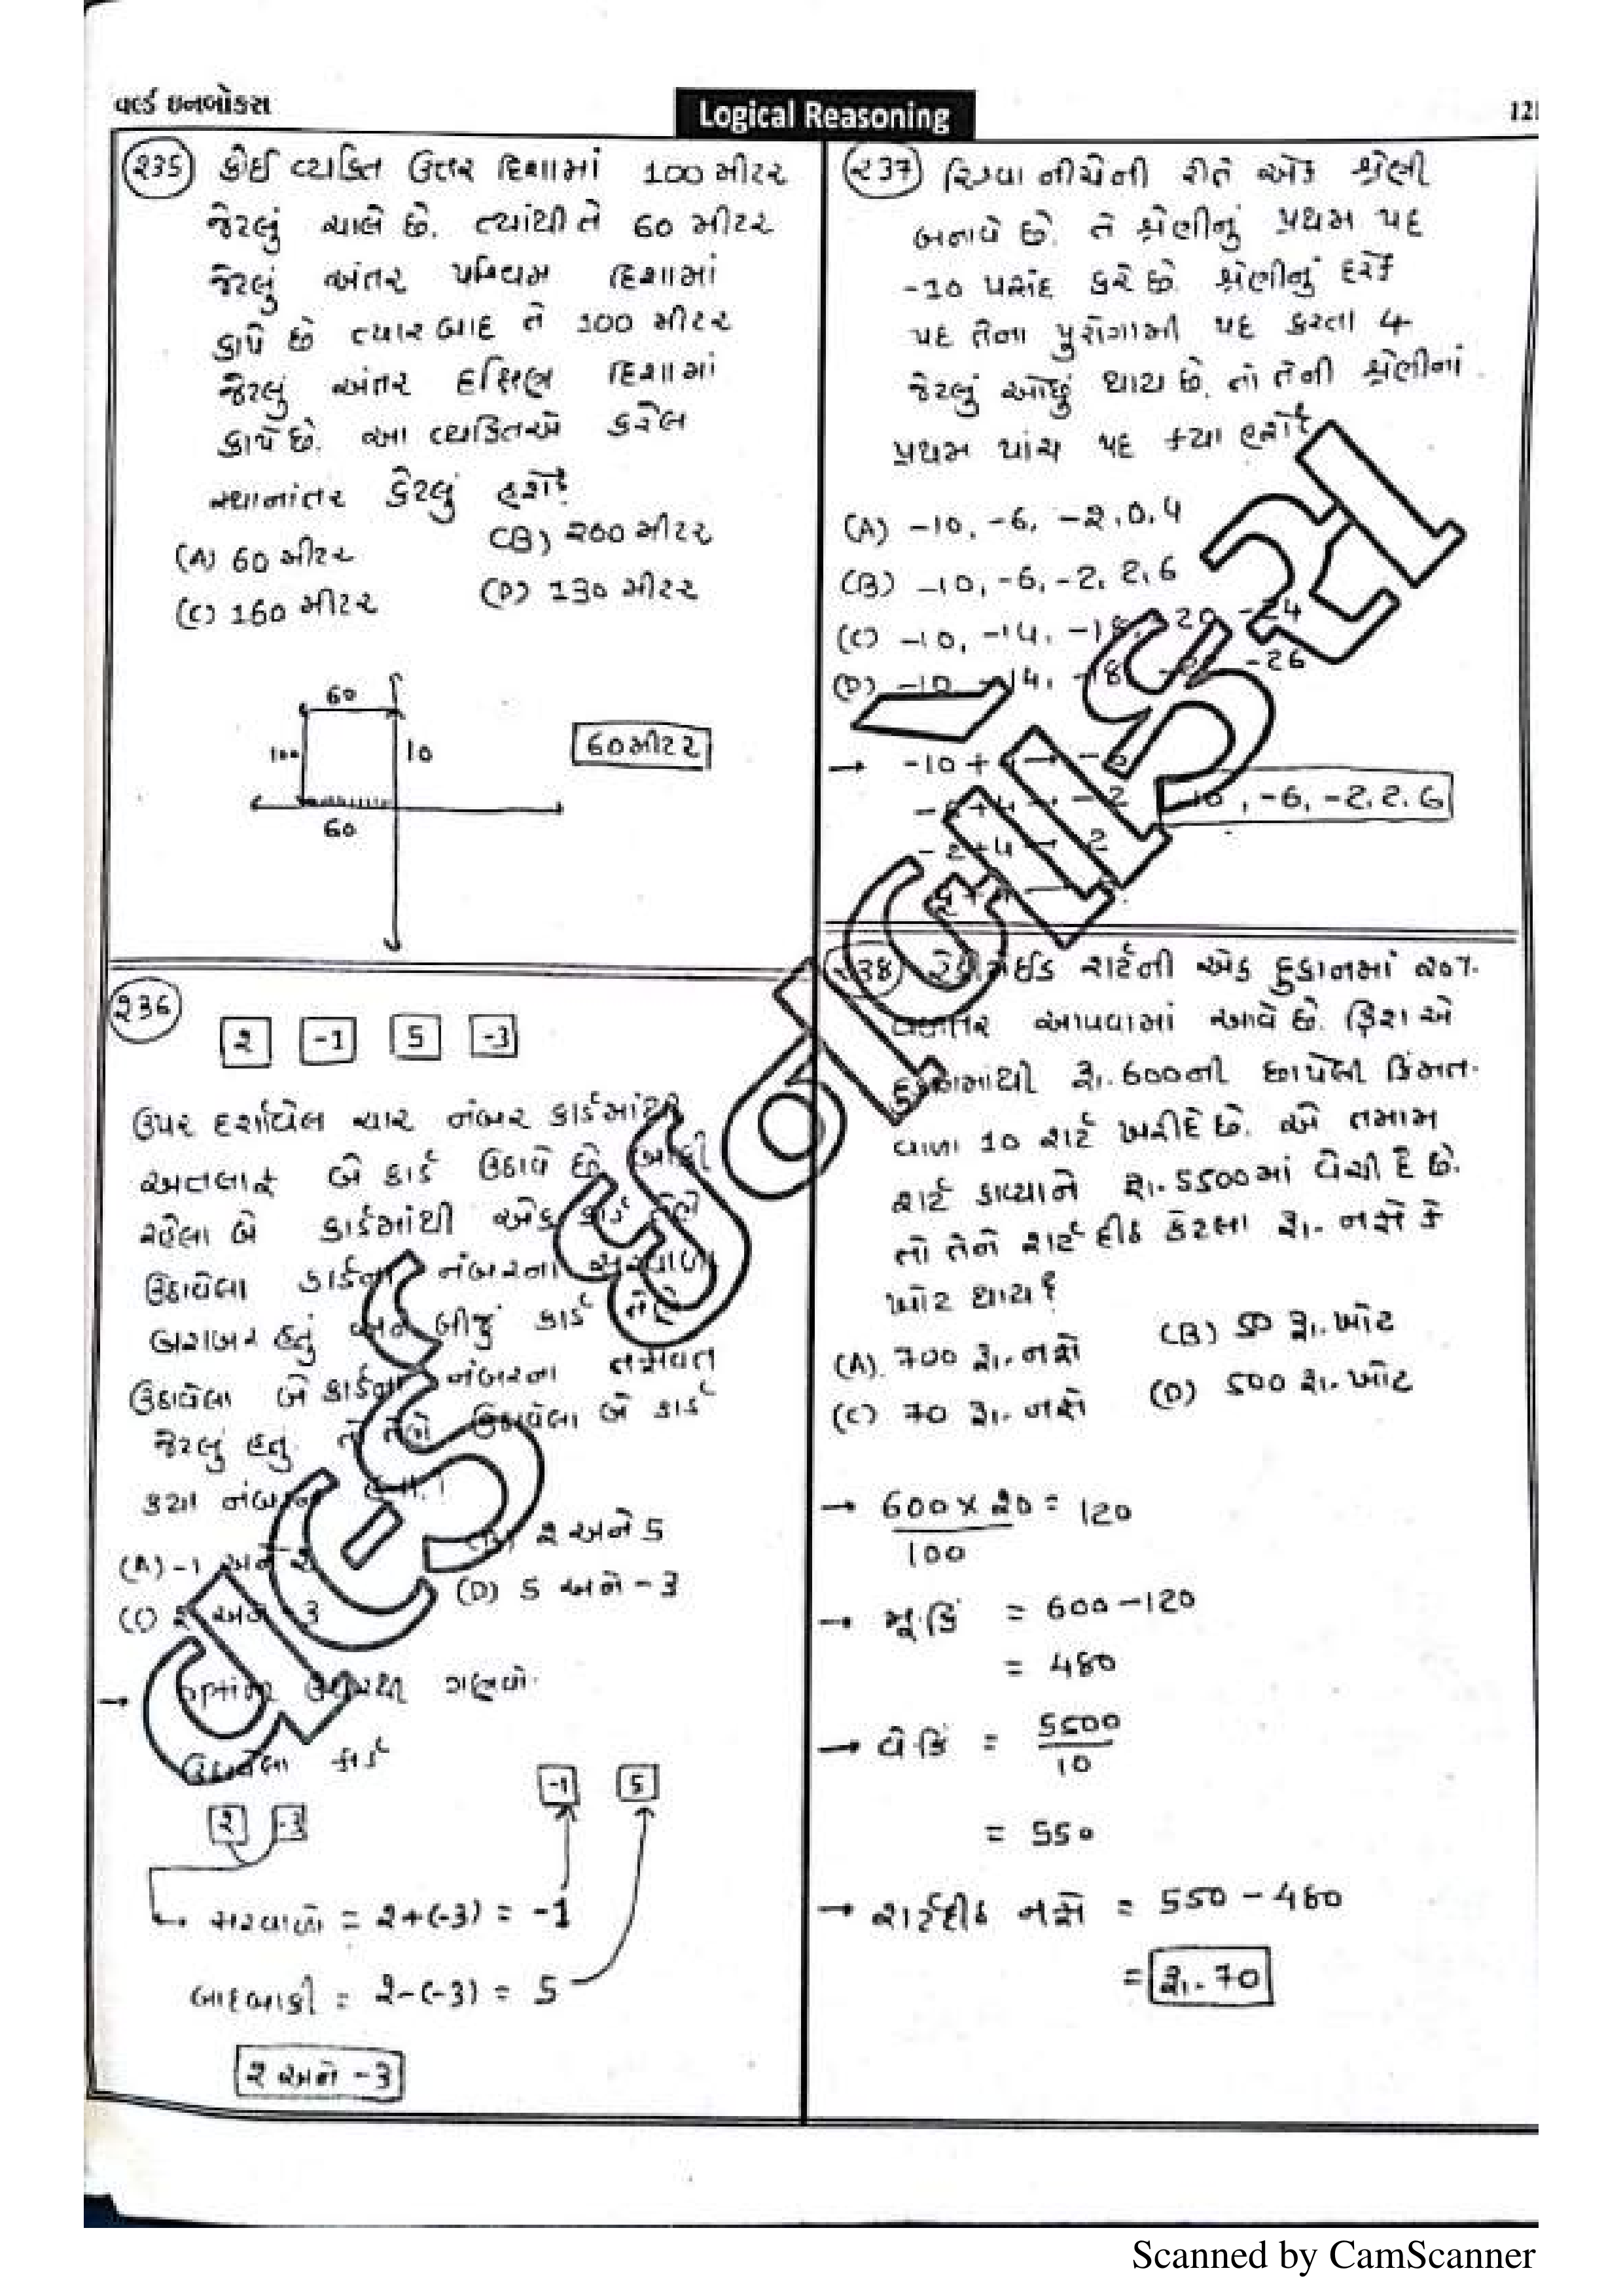 વર્લ્ડ ઇનબોકસ
Logical Reasoning
121
૨૩૫ કોઈ વ્યક્તિ ઉત્તર દિશામાં 100 મીટર
જેટલું ચાલે છે. ત્યાંથી તે 60 મીટર
જેટલું અંતર પશ્ચિમ દિશામાં
કાપે છે ત્યાર બાદ તે 100 મીટર
જેટલું અંતર દક્ષિણ દિશામાં
કાપે છે. આ વ્યક્તિએ કરેલ
સ્થાનાંતર કેટલું હશે?
(A) 60 મીટર (B) ૨00 મીટર
(C) 160 મીટર (D) 130 મીટર
60
100 10
60
60 મીટર
૨૩૬
૨ -1 5 -3
ઉપર દર્શાવેલ ચાર નંબર કાર્ડમાંથી
અતલાફ બે કાર્ડ ઉઠાવે છે. બાકી
રહેલા બે કાર્ડમાંથી એક કાર્ડ
ઉઠાવેલા કાર્ડના નંબરના સરવાળા
બરાબર હતું અને બીજું કાર્ડ તેણે
ઉઠાવેલા બે કાર્ડના નંબરના તફાવત
જેટલું હતું. તો તેણે ઉઠાવેલા બે કાર્ડ
કયા નંબરના હતા.
(A) -1 અને (B) ૨ અને 5
(C) ૨ અને -3 (D) 5 અને -3
→ option ઉપરથી ગણવો.
ઉઠાવેલા કાર્ડ
૨ -3 -1 5
સરવાળો = ૨+(-3) = -1
બાદબાકી = ૨-(-3) = 5
૨ અને -3
૨37 રિયા નીચેની રીતે એક શ્રેણી
બનાવે છે. તે શ્રેણીનું પ્રથમ પદ
-10 પસંદ કરે છે. શ્રેણીનું દરેક
પદ તેના પુરોગામી પદ કરતા 4
જેટલું ઓછું થાય છે. તો તેની શ્રેણીનાં
પ્રથમ પાંચ પદ કયા હશે?
(A) -10, -6, -2, 0, 4
(B) -10, -6, -2, 2, 6
(C) -10, -14, -18, -20, -24
(D) -10, -14, -18, -26
→ -10 + 4 → -6
-6+4 → -2
-10, -6, -2, 2, 6
-2+4 → 2
૨38 રેડીમેઈડ શર્ટની એક દુકાનમાં ૨૦%
વળતર આપવામાં આવે છે. ક્રિશ એ
દુકાનમાંથી રૂ. 600ની છાપેલી કિંમત
વાળા 10 શર્ટ ખરીદે છે. એ તમામ
શર્ટ કાવ્યાને રૂ. 5500માં વેચી દે છે.
તો તેને શર્ટ દીઠ કેટલા રૂ. નફો કે
ખોટ થાય?
(A) 700 રૂ. નફો (B) 50 રૂ. ખોટ
(C) 70 રૂ. નફો (D) 500 રૂ. ખોટ
→ 600 × ૨0 = 120
100
→ મૂ.કિં = 600 - 120
= 480
→ વે.કિં = 5500
10
= 550
→ શર્ટ દીઠ નફો = 550 - 480
= રૂ. 70
Scanned by CamScanner